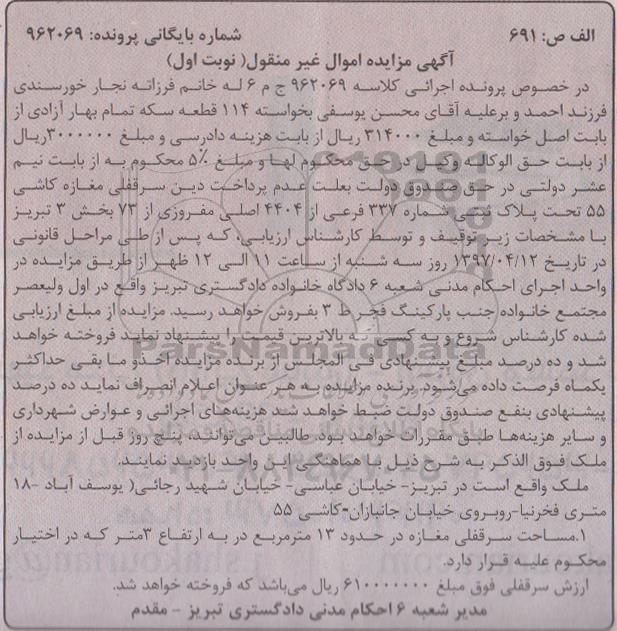 الف ص: ۶۹۱ شماره بایگانی پرونده: ۹۶۲۰۶۹
آگهی مزایده اموال غیر منقول( نوبت اول)
در خصوص پرونده اجرائی کلاسه ۹۶۲۰۶۹ ج م ۶ له خانم فرزانه نجار خورسندی
فرزند احمد و برعلیه آقای محسن یوسفی بخواسته ۱۱۴ قطعه سکه تمام بهار آزادی از
بابت اصل خواسته و مبلغ ۳۱۴۰۰۰ ریال از بابت هزینه دادرسی و مبلغ ۳۰۰۰۰۰۰ریال
از بابت حق الوکاله وکیل در حق محکوم لها و مبلغ ۵٪ محکوم به از بابت نیم
عشر دولتی در حق صندوق دولت بعلت عدم پرداخت دین سرقفلی مغازه کاشی
۵۵ تحت پلاک ثبتی شماره ۳۳۷ فرعی از ۴۴۰۴ اصلی مفروزی از ۷۳ بخش ۳ تبریز
با مشخصات زیر توقیف و توسط کارشناس ارزیابی، که پس از طی مراحل قانونی
در تاریخ ۱۳۹۷/۰۴/۱۲ روز سه شنبه از ساعت ۱۱ الی ۱۲ ظهر از طریق مزایده در
واحد اجرای احکام مدنی شعبه ۶ دادگاه خانواده دادگستری تبریز واقع در اول ولیعصر
مجتمع خانواده جنب پارکینگ فجر ط ۳ بفروش خواهد رسید. مزایده از مبلغ ارزیابی
شده کارشناس شروع و به کسی که بالاترین قیمت را پیشنهاد نماید فروخته خواهد
شد و ده درصد مبلغ پیشنهادی فی المجلس از برنده مزایده اخذو ما بقی حداکثر
یکماه فرصت داده می‌شود. برنده مزایده به هر عنوان اعلام انصراف نماید ده درصد
پیشنهادی بنفع صندوق دولت ضبط خواهد شد هزینه‌های اجرائی و عوارض شهرداری
و سایر هزینه‌ها طبق مقررات خواهد بود. طالبین می‌توانند، پنج روز قبل از مزایده از
ملک فوق الذکر به شرح ذیل با هماهنگی این واحد بازدید نمایند.
ملک واقع است در تبریز- خیابان عباسی- خیابان شهید رجائی( یوسف آباد -۱۸
متری فخرنیا-روبروی خیابان جانبازان-کاشی ۵۵
۱.مساحت سرقفلی مغازه در حدود ۱۳ مترمربع در به ارتفاع ۳متر که در اختیار
محکوم علیه قرار دارد.
ارزش سرقفلی فوق مبلغ ۶۱۰۰۰۰۰۰۰ ریال می‌باشد که فروخته خواهد شد.
مدیر شعبه ۶ احکام مدنی دادگستری تبریز - مقدم
ParsNamadData